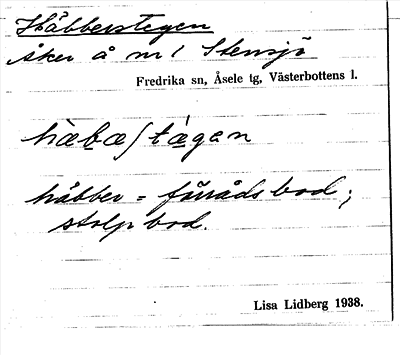 Häbberstegen
åker å nr 1 Stensjö
Fredrika sn, Åsele tg, Västerbottens l.
hæbæstǽgen
häbber = förrådsbod;
stolpbod.
Lisa Lidberg 1938.